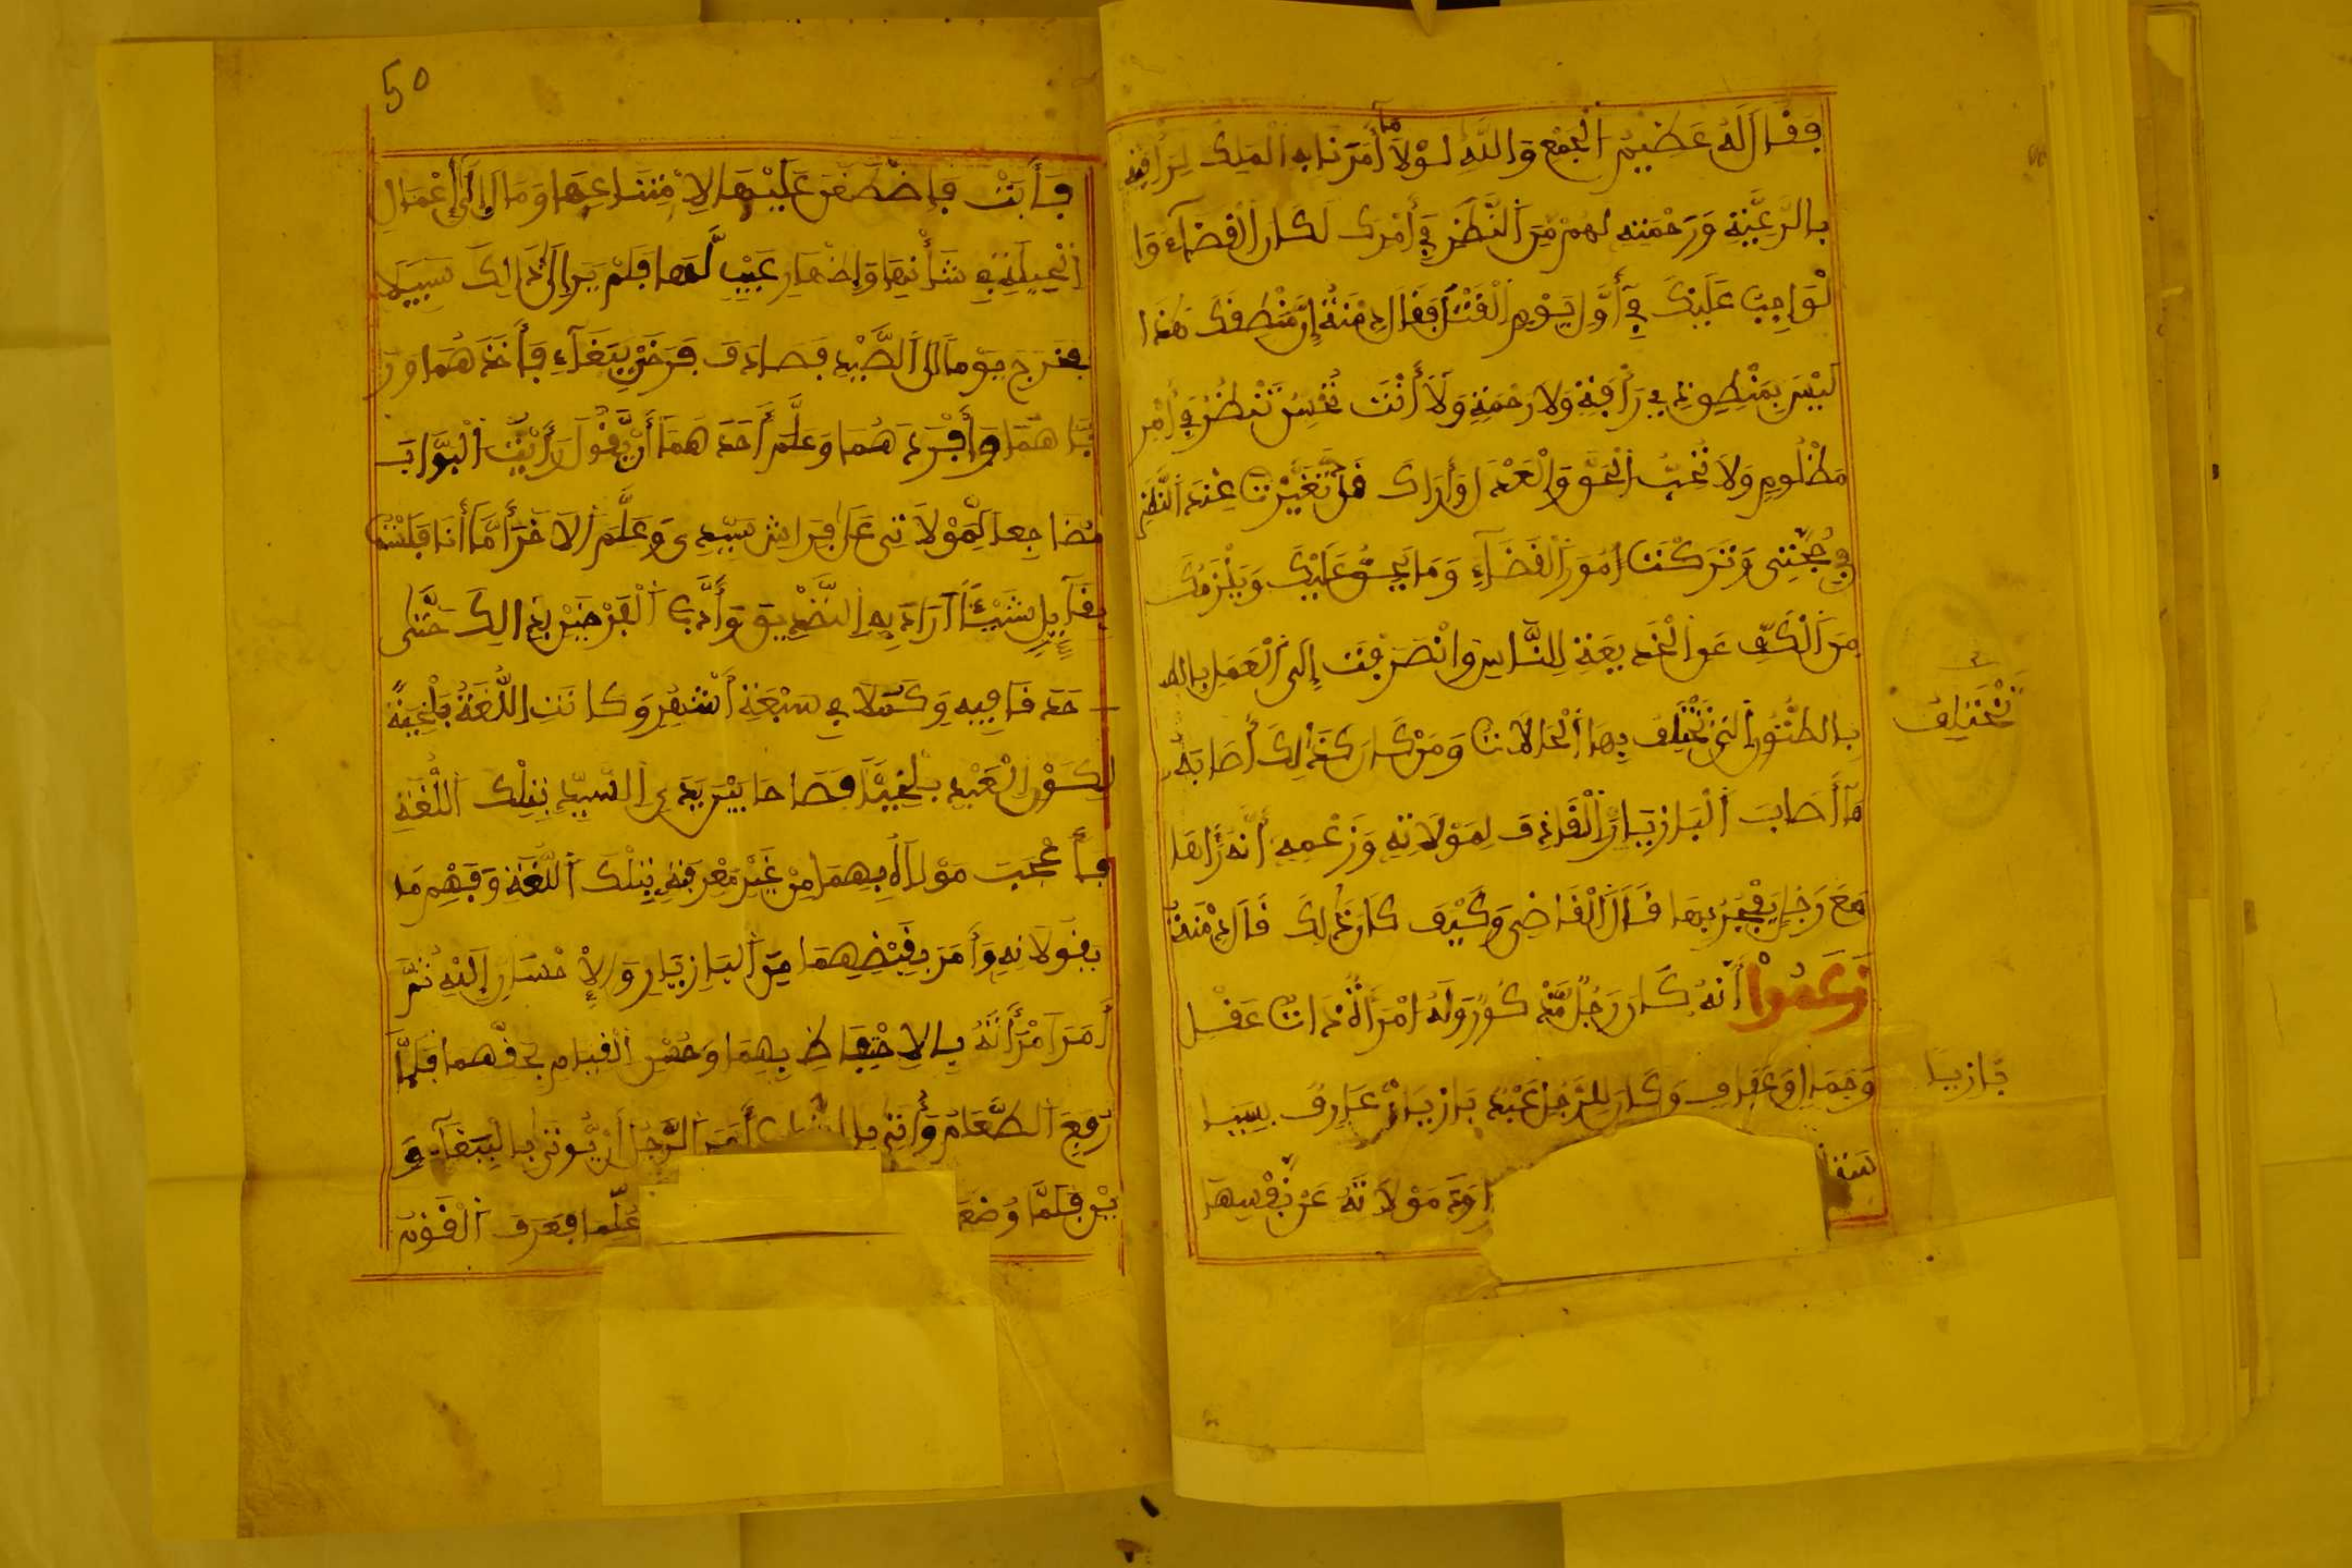 فَقَالَ لَهُ عَظِيمُ الْجَمْعِ وَاللَّهِ لَوْلَا مَا أَمَرَنَا بِهِ الْمَلِكُ لِرَأْفَتِهِ
بِالرَّعِيَّةِ وَرَحْمَتِهِ لَهُمْ مِنَ النَّظَرِ فِي أَمْرِكَ لَكَانَ الْقَضَاءُ وَا
لْوَاجِبُ عَلَيْكَ فِي أَوَّلِ يَوْمٍ الْقَتْلَ فَقَالَ دِمْنَةُ إِنَّ مَنْطِقَكَ هَذَا
لَيْسَ بِمَنْطِقِ ذِي رَأْفَةٍ وَلَا رَحْمَةٍ وَلَا أَنْتَ تُحْسِنُ تَنْظُرُ فِي أَمْرِ
مَظْلُومٍ وَلَا تُحِبُّ الْحَقَّ وَالْعَدْلَ وَأَرَاكَ قَدْ تَغَيَّرْتَ عِنْدَ النَّظَرِ
فِي حُجَّتِي وَتَرَكْتَ أُمُورَ الْقَضَاءِ وَمَا يَحِقُّ عَلَيْكَ وَيَلْزَمُكَ
مِنَ الْكَفِّ عَنِ الْخَدِيعَةِ لِلنَّاسِ وَانْصَرَفْتَ إِلَى الْعَمَلِ بِالظ
بِالظُّنُونِ الَّتِي تَخْتَلِفُ بِهَا الْحَالَاتُ وَمَنْ كَانَ كَذَلِكَ أَصَابَهُ
تَخْتَلِفُ
مَا أَصَابَ الْبَازِيَارَ الْقَاذِفَ لِمَوْلَاتِهِ وَزَعْمِهِ أَنَّهُ رَآهَا
مَعَ رَجُلٍ يَفْجُرُ بِهَا قَالَ الْقَاضِي وَكَيْفَ كَانَ ذَلِكَ قَالَ دِمْنَةُ
زَعَمُوا أَنَّهُ كَانَ رَجُلٌ مَذْكُورٌ وَلَهُ امْرَأَةٌ ذَاتُ عَقْلٍ
وَجَمَالٍ وَعَفَافٍ وَكَانَ لِلرَّجُلِ عَبْدٌ بَازِيَارٌ عَارِفٌ بِسَبَبِ
بَازِيَا
مَوْلَاتَهُ عَنْ نَفْسِهَا
50
فَأَبَتْ فَاضْطَغَنَ عَلَيْهَا لِامْتِنَاعِهَا وَمَالَ إِلَى إِعْمَالِ
الْحِيلَةِ فِي شَأْنِهَا وَإِظْهَارِ عَيْبٍ لَهَا فَلَمْ يَرَ إِلَى ذَلِكَ سَبِيلًا
فَخَرَجَ يَوْمًا إِلَى الصَّيْدِ فَصَادَفَ فَرْخَيْ بَبَّغَاءٍ فَأَخَذَهُمَا وَرَ
بَّاهُمَا وَأَفْرَدَهُمَا وَعَلَّمَ أَحَدَهُمَا أَنْ يَقُولَ رَأَيْتُ الْبَوَّابَ
مُضَاجِعًا لِمَوْلَاتِي عَلَى فِرَاشِ سَيِّدِي وَعَلَّمَ الْآخَرَ أَمَّا أَنَا فَلَسْتُ
بِقَائِلٍ شَيْئًا أَرَادَ بِهِ التَّصْدِيقَ وَأَدَّبَ الْفَرْخَيْنِ بِذَلِكَ حَتَّى
حَذَقَا فِيهِ وَكَمُلَا فِي سَبْعَةِ أَشْهُرٍ وَكَانَتِ اللُّغَةُ بَلْخِيَّةً
لِكَوْنِ الْعَبْدِ بَلْخِيًّا فَصَاحَا بَيْنَ يَدَيِ السَّيِّدِ بِتِلْكَ اللُّغَةِ
فَأَعْجَبَ مَوْلَاهُ بِهِمَا مِنْ غَيْرِ مَعْرِفَةٍ بِتِلْكَ اللُّغَةِ وَفَهْمِ مَا
يَقُولَانِهِ وَأَمَرَ بِقَبْضِهِمَا مِنَ الْبَازِيَارِ وَالْإِحْسَانِ إِلَيْهِ ثُمَّ
أَمَرَ امْرَأَتَهُ بِالِاحْتِفَاظِ بِهِمَا وَحُسْنِ الْقِيَامِ بِحَقِّهِمَا فَلَمَّا
رُفِعَ الطَّعَامُ وَأُتِيَ أَمَرَ الرَّجُلُ أَنْ يُؤْتَى بِالْبَبَّغَاءَ
يْنِ فَلَمَّا وُضِعَ عُلِّمَا فَعَرَفَ الْقَوْمُ